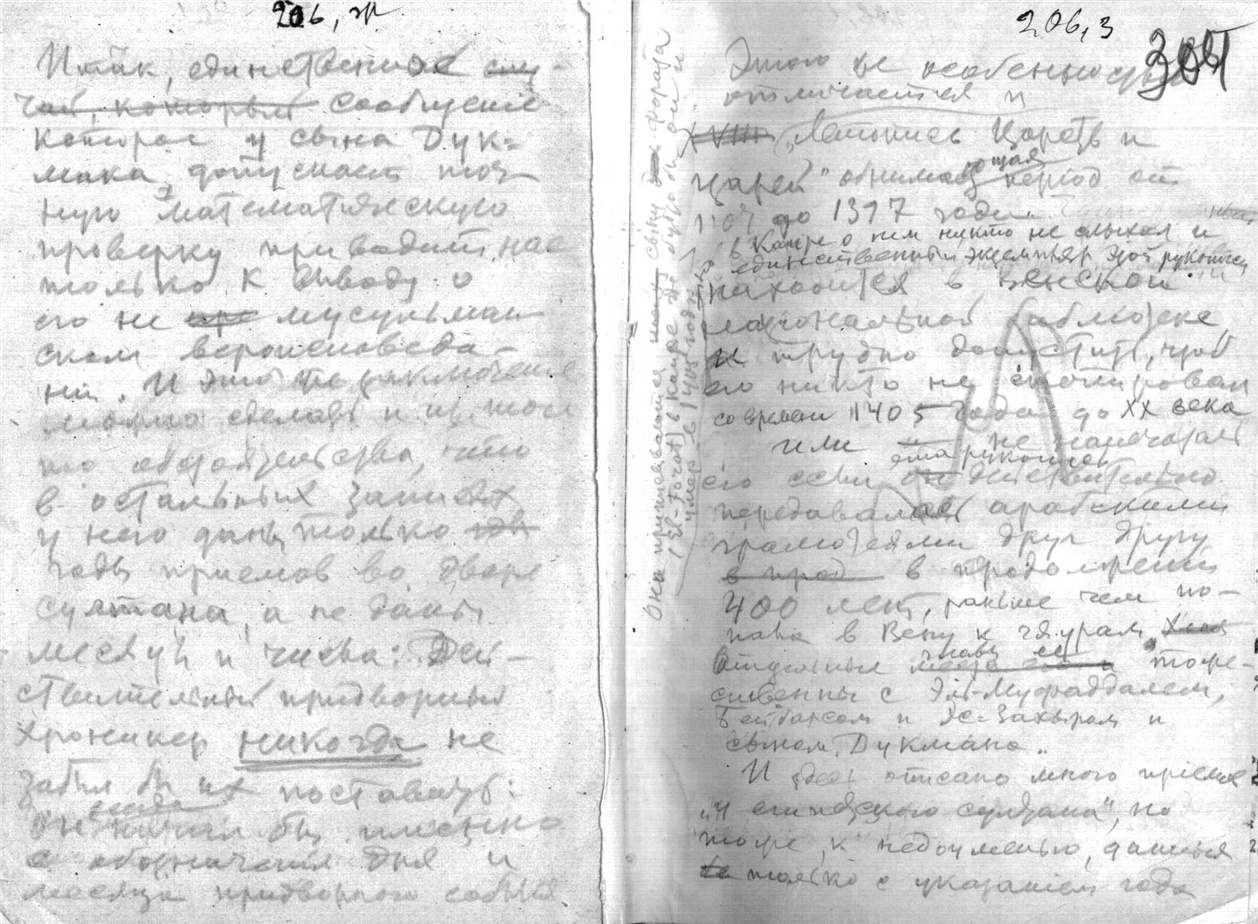 206, ж
Итак, единственное слу-
чай, который сообщение
которое у сына Дук-
мака допускает точ-
ную математическую
проверку приводит нас
только к выводу о
его не мусульман-
ском вероисповеда-
нии. И это же заключение
можно сделать и из того
обстоятельства, что
в остальных записях
у него даны только
годы приемов во дворе
султана, а не даны
месяцы и числа: Дей-
ствительный придворный
хроникер никогда не
забыл бы их поставить:
он бы именно
с обозначения дня и
месяца придворного события
206, з
Этого не особенно
отличается и
XVIII „Летопись Царств и
царей" обнимающая период от
до 1397 года.
в Каире о нем никто не слыхал и
единственный экземпляр этой рукописи
находится в венской
национальной библиотеке
и трудно допустить, чтоб
его никто не скопировал
со времени 1405 года до XX века
или не напечатал
его если эта рукопись действительно
передавалась арабскими
грамотеями друг другу
в прод в продолжении
400 лет, раньше чем по-
пала в Вену к гяурам.
Отдельные главы ее тоже-
ственны с Эль-Муфаддалем,
Бейбарсом и Эс-Захыром и
сыном Дукмака.
И здесь описано много приемов
„у египетского султана", но
тоже, к недоумению, данных
только с указанием года
Она приписывается сыну Фората
(El-Forat) в Каире
умер в 1405 году